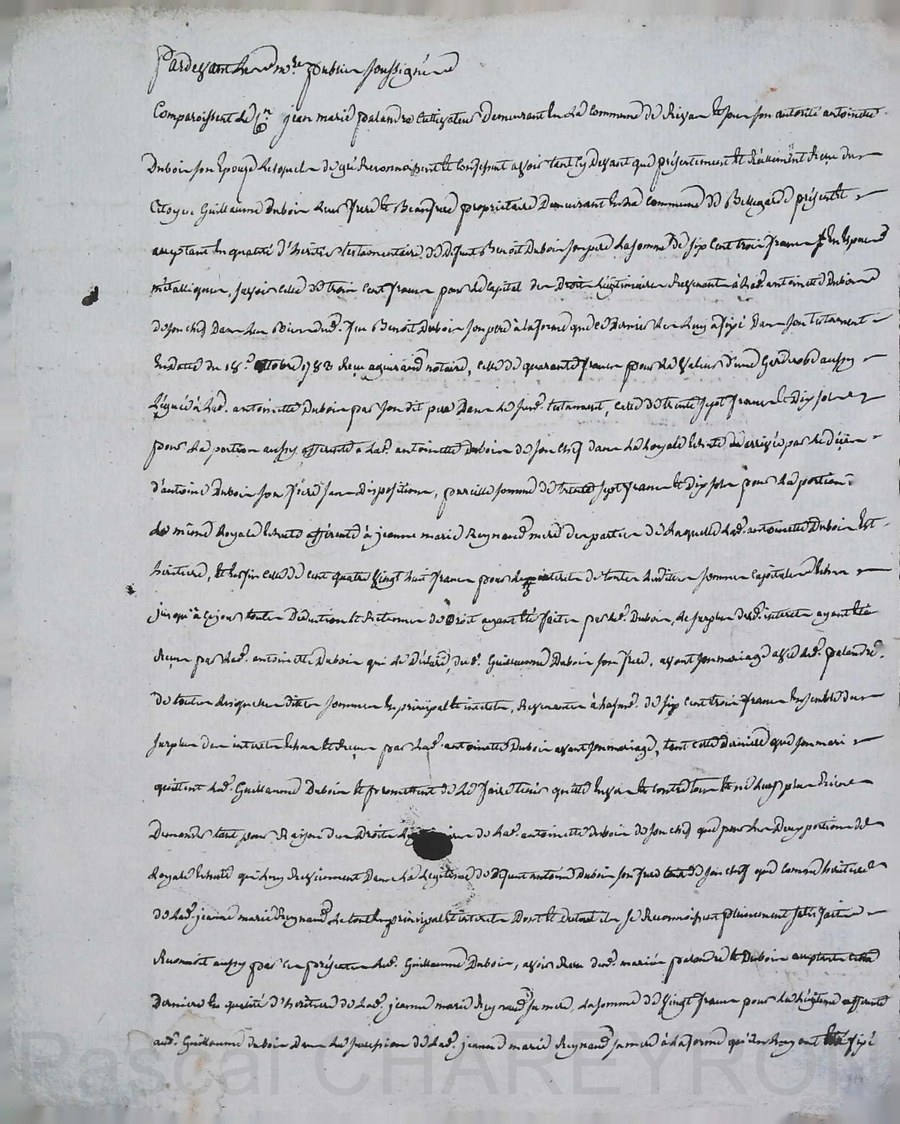 Pardevant les nres publics soussignés
Comparoissent le Cn. jean marie palandre Cultivateur Demeurant en La Commune de et sous son autorité antoinette
Duboin son Epouse Lesquels de gré Reconnoissent et Confessent avoir tant Cy Devant que présentement et Réellement Reçu du
Citoyen Guillaume Duboin Leur frere et Beaufrere propriétaire Demeurant en La commune de Bellegarde présent et
acceptant En qualité d'héritier testamentaire de defunt Benoit Duboin son pere La somme de six cent trois francs En Especes
métalliques, savoir celle de trois Cent francs pour le Capital des Droits Légitimaires Revenants à Lad. antoinette Duboin
de son chef Dans Les Biens dud. feu Benoit Duboin son pere à la forme que ce Dernier les Luy a fixé Dans son testament
En date du 18e. octobre 1783 Reçu notaire, celle de quarante francs pour La Valeur d'une Garderobe aussy
Léguée à Lad. antoinette Duboin par son dit pere Dans Le susd. testament, celle de trente sept francs et Dix sols
pour La portion aussy afférente à Lad. antoinette Duboin de son Chef dans La Royale Echute arrivée par le décès
d'antoine Duboin son frere sans Dispositions, pareille somme de trente sept francs et Dix sols pour La portion
de même Royale Echute afférente à jeanne marie Reynaud mere des parties de Laquelle Lad. antoinette Duboin Est
héritiere, Et Enfin celle de cent quatre Vingt huit francs pour Les interets de toutes Lesdites sommes Capitales Echus
jusqu'à Ce jour toutes Déductions et Retenues de Droit ayant été faites par led. Duboin, Le surplus desd. interets ayant été
Reçu par Lad. antoinette Duboin qui Le Déclare, dud. Guillaume Duboin son frere, avant son mariage avec led. palandre.
De toutes Lesquelles dittes sommes En principal et interets, Revenantes à La susd. de six cent trois francs Ensemble du
surplus des interets Echus et Reçus par Lad. antoinette Duboin avant son mariage, tant cette derniere que son mari
quittent Led. Guillaume Duboin et promettent de Le faire tenir quitte Envers Et contre tous et ne Luy plus Rien
Demander tant pour Raison des Droits de Lad. antoinette Duboin de son chef que pour Les Deux portions de
Royale Echute qui Luy Reviennent Dans La Legitime de defunt antoine Duboin son frere tant de son chef que Comme héritiere
de Lad. jeanne marie Reynaud, Le tout En principal et interets Dont et du tout ils se Reconnoissent pleinement satisfaits
Reconnoit aussy par Ces présentes Led. Guillaume Duboin, avoir Reçu desd. mariés palandre et Duboin acceptante cette
Derniere En qualité d'héritiere de Lad. jeanne marie Reynaud sa mere, La somme de Vingt francs pour La Légitime afférente
aud. Guillaume Duboin Dans La succession de Lad. jeanne marie Reynaud sa mere à La forme qu'Elle fixé
Pascal CHAREYRON